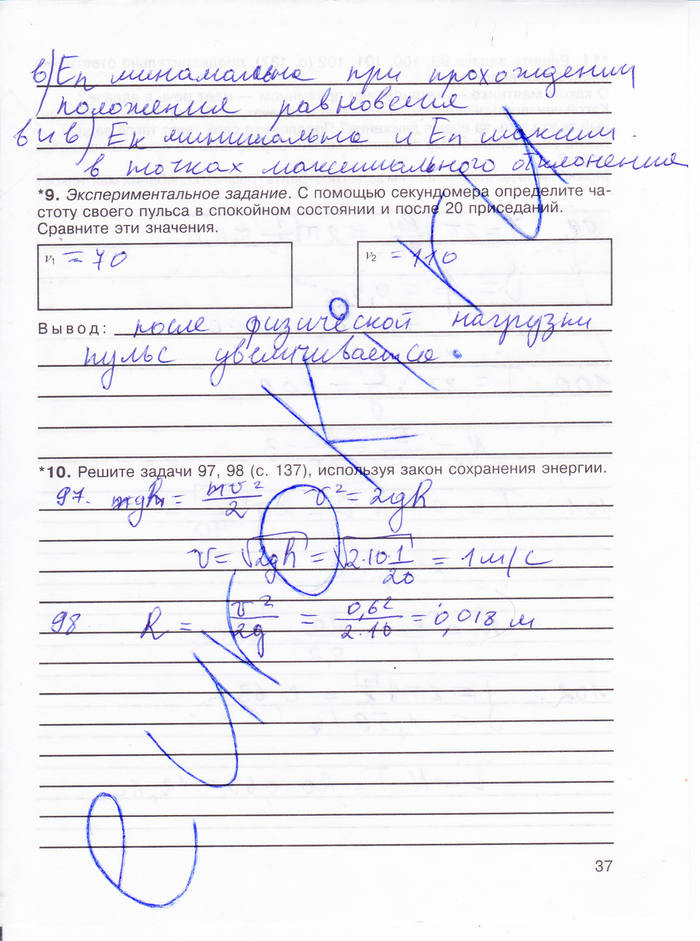 в) Еп минамальна при прохождении
положения равновесия
в и в) Ек минимальна и Еп максим.
в точках максимального отклонения
*9. Экспериментальное задание. С помощью секундомера определите ча-
стоту своего пульса в спокойном состоянии и после 20 приседаний.
Сравните эти значения.
ν₁ = 70
ν₂ = 110
Вывод: после физической нагрузки
пульс увеличивается.
*10. Решите задачи 97, 98 (с. 137), используя закон сохранения энергии.
97. mgh = mv²/2 v² = 2gh
v = √2gh = √2·10·1/20 = 1 м/с
98 h = v²/2g = 0,6²/2·10 = 0,018 м
37